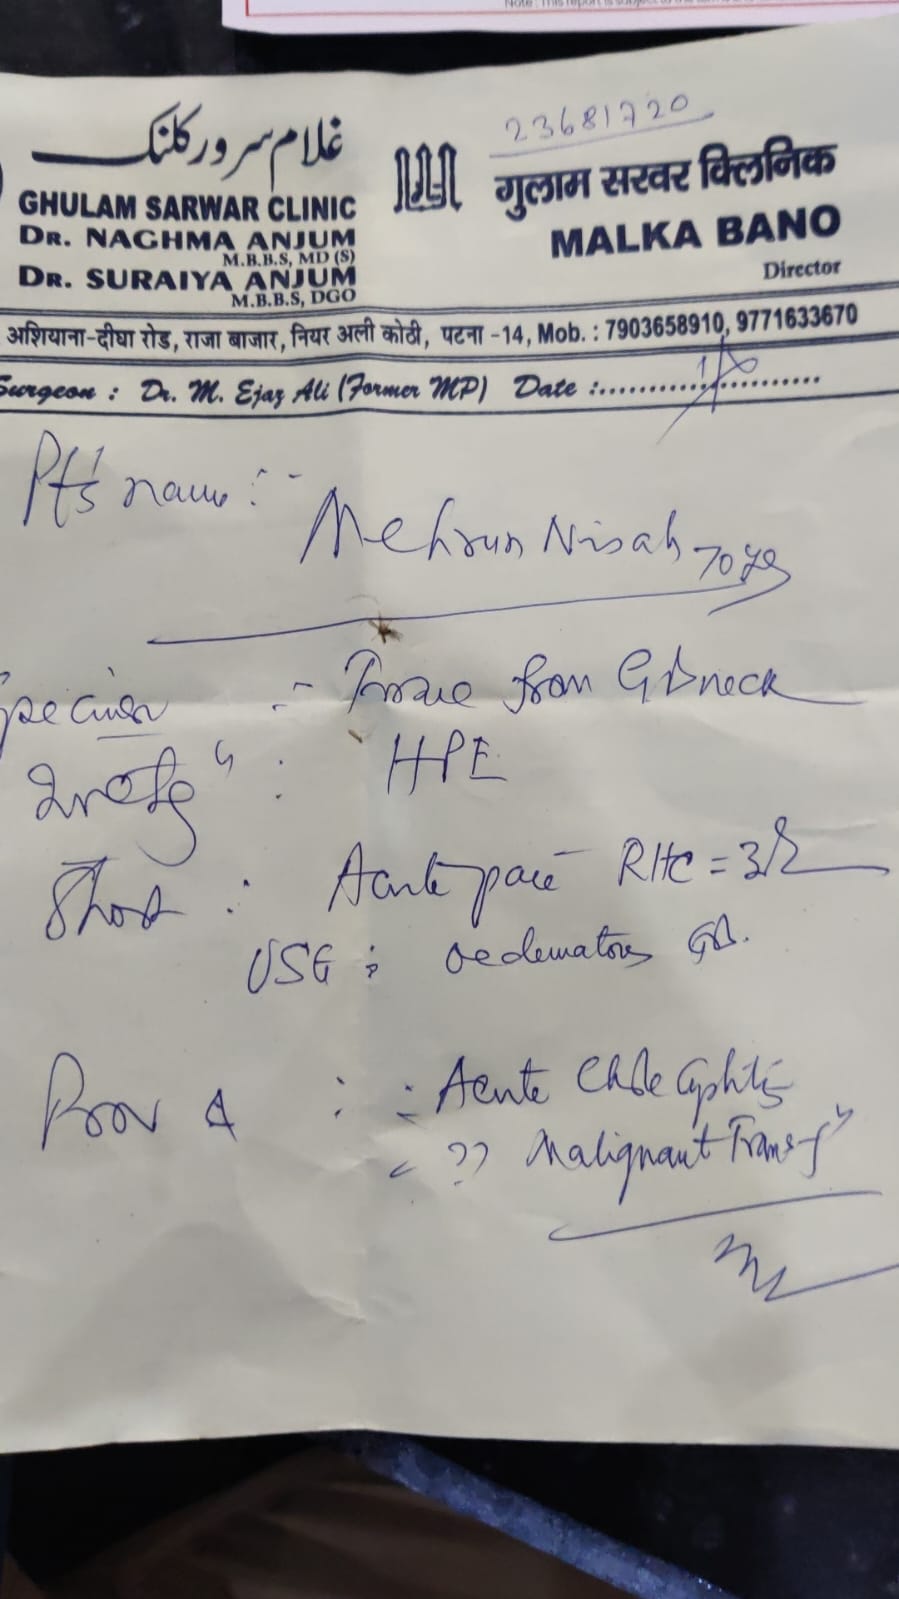 Note : This report is subject to the
23681720
غلام سرور کلنک
गुलाम सरवर क्लिनिक
GHULAM SARWAR CLINIC
MALKA BANO
Director
DR. NAGHMA ANJUM
M.B.B.S, MD (S)
DR. SURAIYA ANJUM
M.B.B.S, DGO
अशियाना-दीघा रोड, राजा बाजार, नियर अली कोठी, पटना -14, Mob. : 7903658910, 9771633670
Surgeon : Dr. M. Ejaz Ali (Former MP) Date :......................
Pt's name :-
Mehrun Nisah 70 ys
Specimen :- Tissue from GB neck
: HPE
Short : Acute pain RHC =
USG : oedematous GB.
Prov Δ : - Acute Cholecystitis
- ?? Malignant Transfn